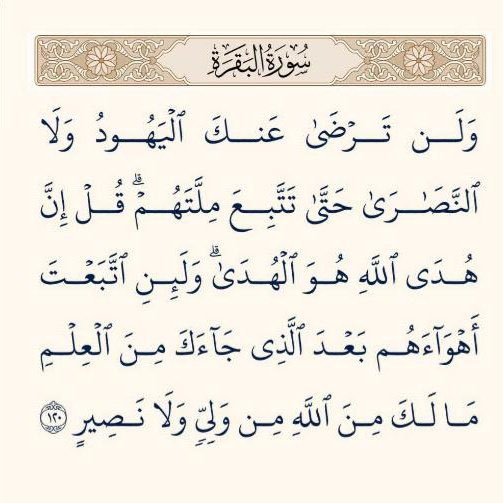 سُورَةُ البَقَرَةِ
وَلَن تَرۡضَىٰ عَنكَ ٱلۡيَهُودُ وَلَا
ٱلنَّصَٰرَىٰ حَتَّىٰ تَتَّبِعَ مِلَّتَهُمۡۗ قُلۡ إِنَّ
هُدَى ٱللَّهِ هُوَ ٱلۡهُدَىٰۗ وَلَئِنِ ٱتَّبَعۡتَ
أَهۡوَآءَهُم بَعۡدَ ٱلَّذِي جَآءَكَ مِنَ ٱلۡعِلۡمِ
مَا لَكَ مِنَ ٱللَّهِ مِن وَلِيّٖ وَلَا نَصِيرٍ ١٢٠